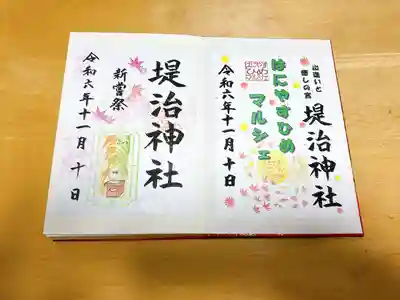 出逢いと
癒しの宮
堤治神社
はにやすひめ
マルシェ
令和六年十一月十日
堤治神社
新嘗祭
令和六年十一月十日